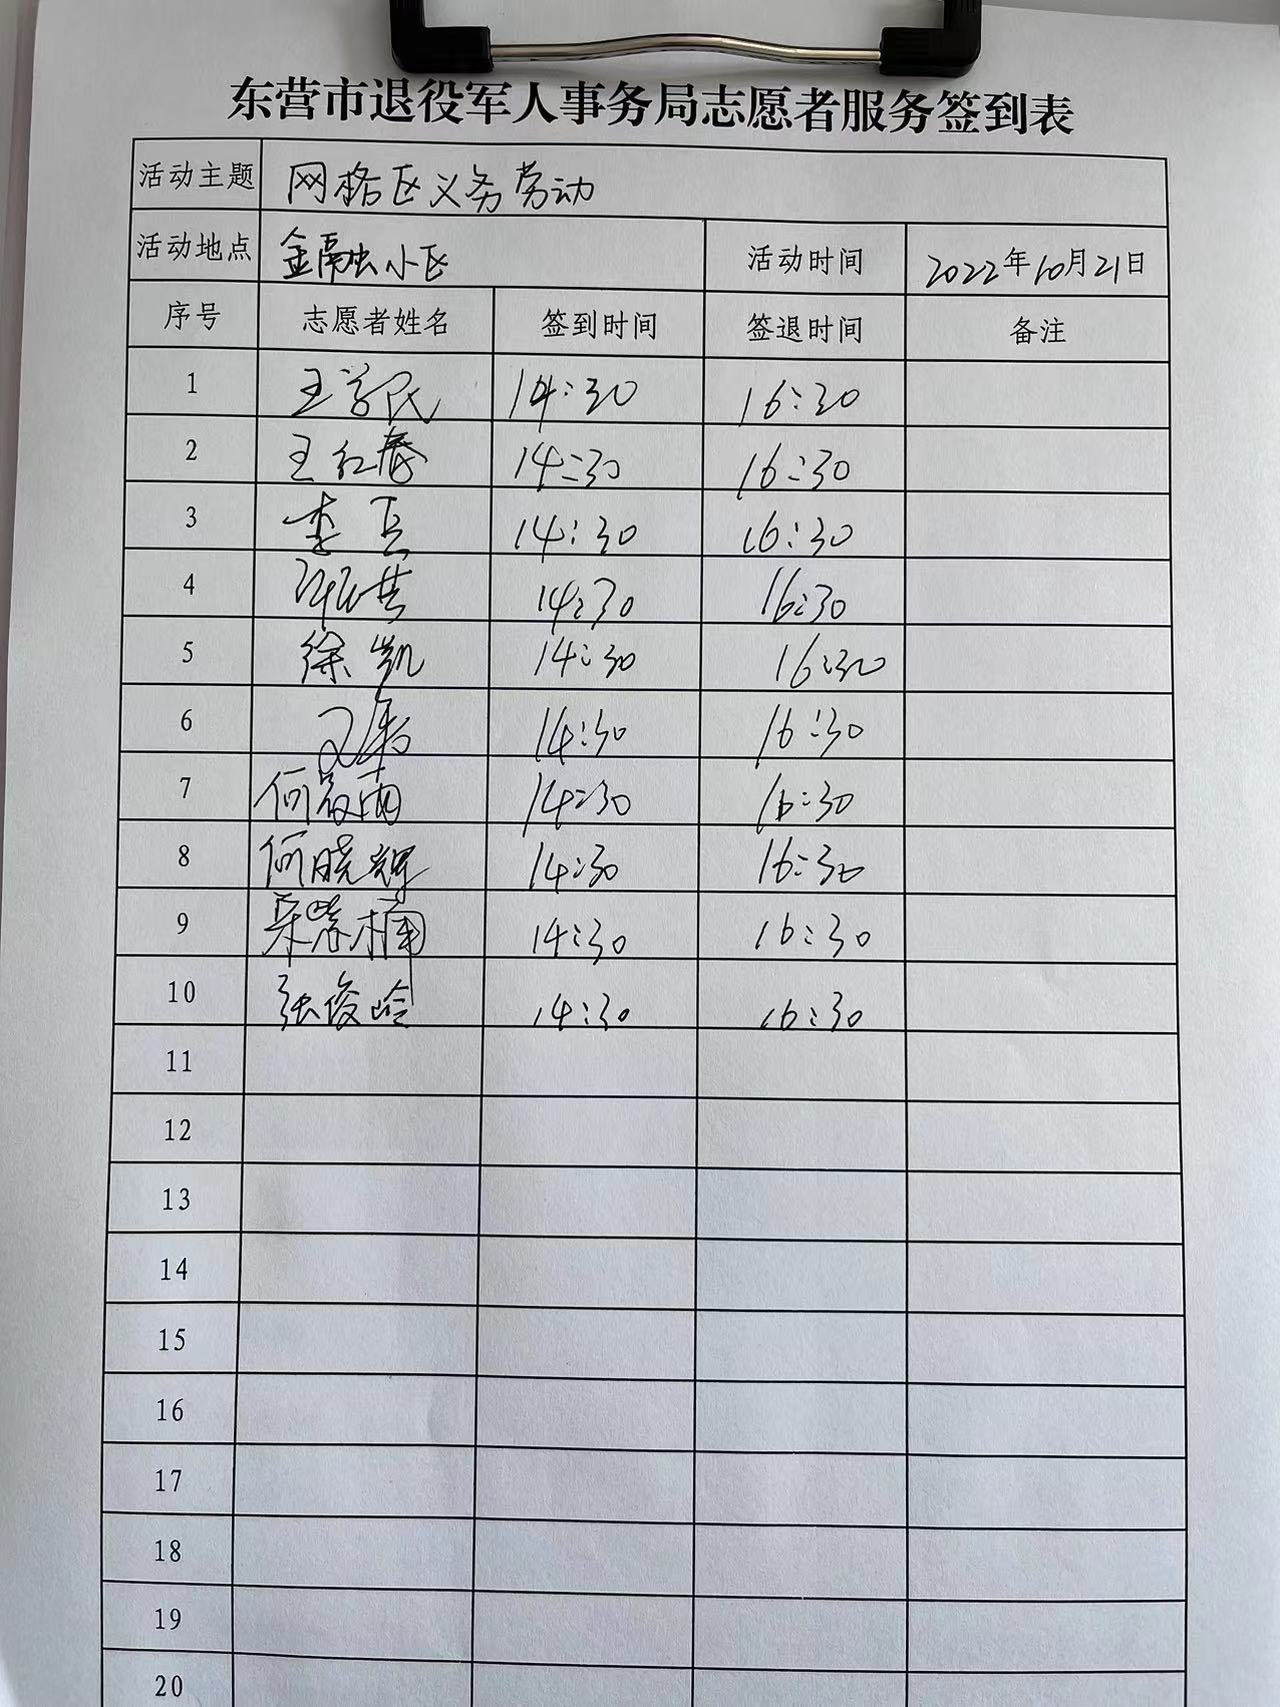 东营市退役军人事务局志愿者服务签到表
活动主题 网格区义务劳动
活动地点 金融小区 活动时间 2022年10月21日
序号 志愿者姓名 签到时间 签退时间 备注
1 王学民 14:30 16:30
2 王红春 14:30 16:30
3 李 14:30 16:30
4 14:30 16:30
5 徐凯 14:30 16:30
6 14:30 16:30
7 何 南 14:30 16:30
8 何晓辉 14:30 16:30
9 14:30 16:30
10 张俊岭 14:30 16:30
11
12
13
14
15
16
17
18
19
20